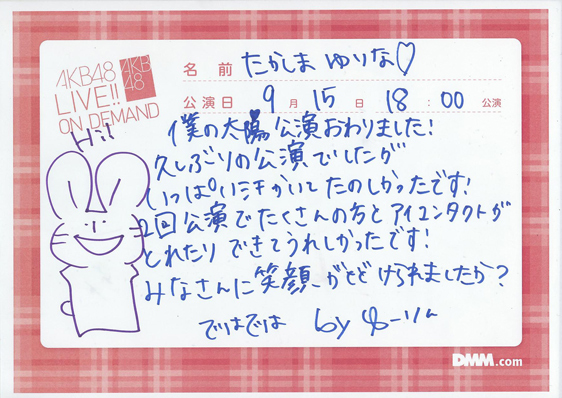 AKB48
LIVE!!
ON DEMAND
AKB
48
名前 たかしま ゆりな♡
公演日 9月15日 18:00 公演
Hi!
僕の太陽公演おわりました!
久しぶりの公演でしたが
いっぱい汗かいてたのしかったです!
2回公演でたくさんの方とアイコンタクトが
とれたりできてうれしかったです!
みなさんに笑顔がとどけられましたか?
ではでは by ゆーりん
DMM.com